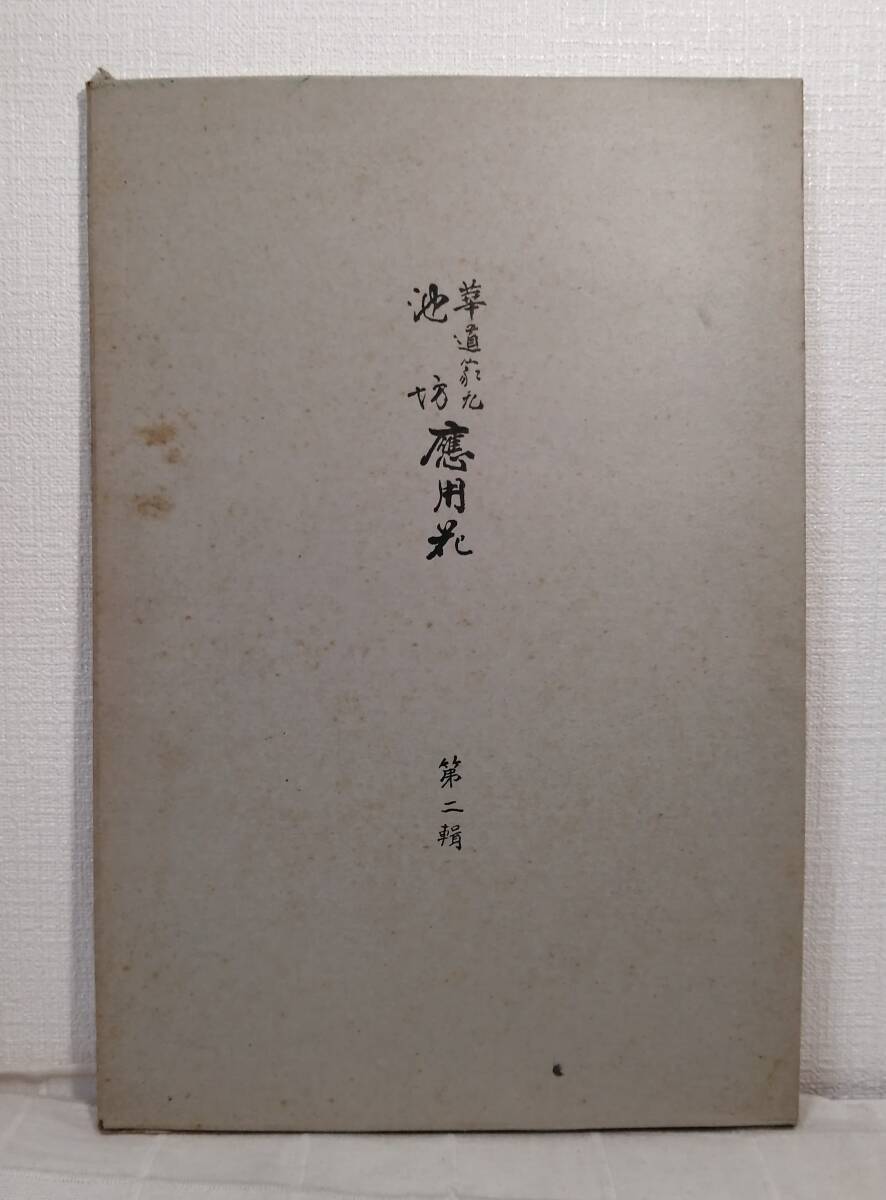 華道家元
池坊
應用花
第二輯